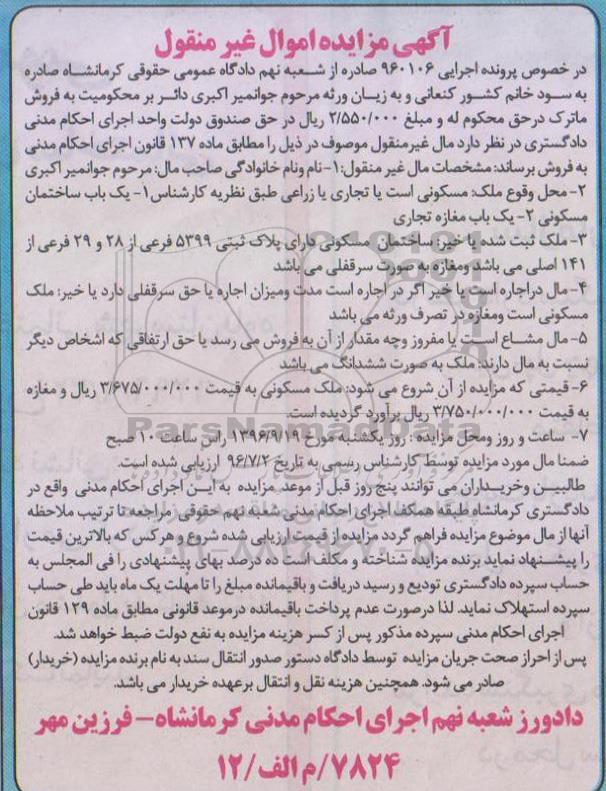 آگهی مزایده اموال غیر منقول
در خصوص پرونده اجرایی ۹۶۰۱۰۶ صادره از شعبه نهم دادگاه عمومی حقوقی کرمانشاه صادره
به سود خانم کشور کنعانی و به زیان ورثه مرحوم جوانمیر اکبری دائر بر محکومیت به فروش
ماترک درحق محکوم له و مبلغ ۲/۵۵۰/۰۰۰ ریال در حق صندوق دولت واحد اجرای احکام مدنی
دادگستری در نظر دارد مال غیرمنقول موصوف در ذیل را مطابق ماده ۱۳۷ قانون اجرای احکام مدنی
به فروش برساند: مشخصات مال غیر منقول: ۱-نام ونام خانوادگی صاحب مال: مرحوم جوانمیر اکبری
۲- محل وقوع ملک: مسکونی است یا تجاری یا زراعی طبق نظریه کارشناس ۱- یک باب ساختمان
مسکونی ۲- یک باب مغازه تجاری
۳- ملک ثبت شده یا خیر: ساختمان مسکونی دارای پلاک ثبتی ۵۳۹۹ فرعی از ۲۸ و ۲۹ فرعی از
۱۴۱ اصلی می باشد ومغازه به صورت سرقفلی می باشد
۴- مال دراجاره است یا خیر اگر در اجاره است مدت ومیزان اجاره یا حق سرقفلی دارد یا خیر: ملک
مسکونی است ومغازه در تصرف ورثه می باشد
۵- مال مشاع است یا مفروز وچه مقدار از آن به فروش می رسد یا حق ارتفاقی که اشخاص دیگر
نسبت به مال دارند: ملک به صورت ششدانگ می باشد
۶- قیمتی که مزایده از آن شروع می شود: ملک مسکونی به قیمت ۳/۶۷۵/۰۰۰/۰۰۰ ریال و مغازه
به قیمت ۲/۷۵۰/۰۰۰/۰۰۰ ریال برآورد گردیده است.
۷- ساعت و روز ومحل مزایده : روز یکشنبه مورخ ۱۳۹۶/۹/۱۹ راس ساعت ۱۰ صبح
ضمنا مال مورد مزایده توسط کارشناس رسمی به تاریخ ۹۶/۷/۲ ارزیابی شده است.
طالبین وخریداران می توانند پنج روز قبل از موعد مزایده به این اجرای احکام مدنی واقع در
دادگستری کرمانشاه طبقه همکف اجرای احکام مدنی شعبه نهم حقوقی مراجعه تا ترتیب ملاحظه
آنها از مال موضوع مزایده فراهم گردد مزایده از قیمت ارزیابی شده شروع و هرکس که بالاترین قیمت
را پیشنهاد نماید برنده مزایده شناخته و مکلف است ده درصد بهای پیشنهادی را فی المجلس به
حساب سپرده دادگستری تودیع و رسید دریافت و باقیمانده مبلغ را تا مهلت یک ماه باید طی حساب
سپرده استهلاک نماید. لذا درصورت عدم پرداخت باقیمانده درموعد قانونی مطابق ماده ۱۲۹ قانون
اجرای احکام مدنی سپرده مذکور پس از کسر هزینه مزایده به نفع دولت ضبط خواهد شد.
پس از احراز صحت جریان مزایده توسط دادگاه دستور صدور انتقال سند به نام برنده مزایده (خریدار)
صادر می شود. همچنین هزینه نقل و انتقال برعهده خریدار می باشد.
دادورز شعبه نهم اجرای احکام مدنی کرمانشاه – فرزین مهر
۷۸۲۴/م الف/۱۲
ParsNamadData